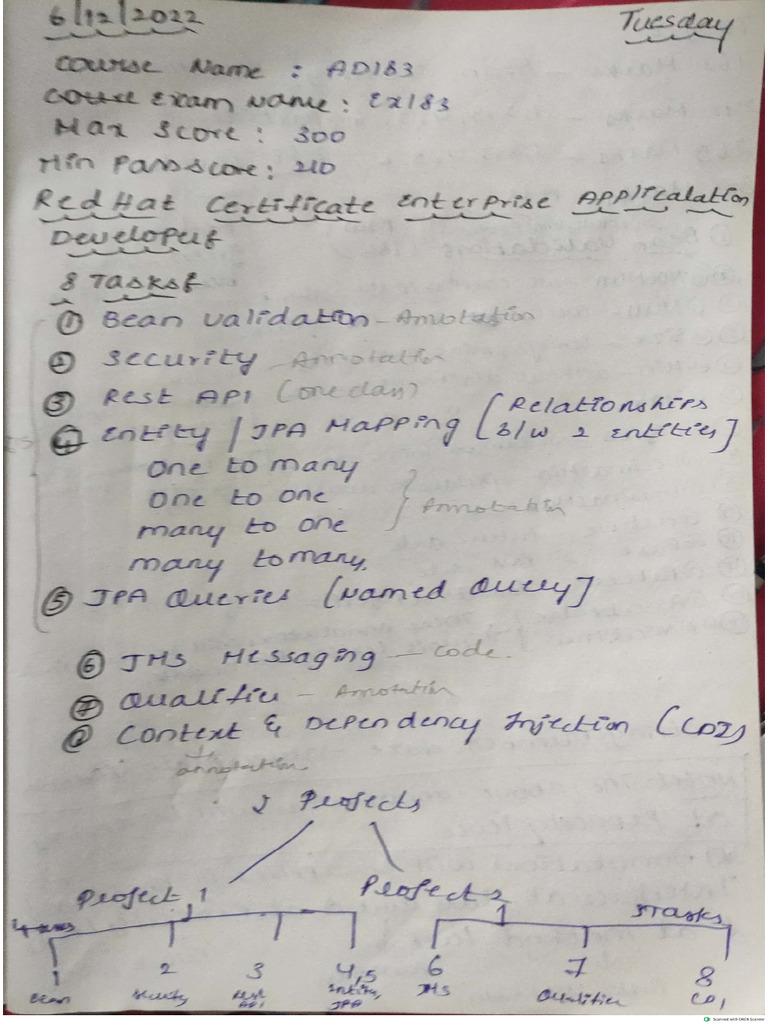 6/12/2022 Tuesday
Course Name : AD183
Course Exam Name : EX183
Max Score : 300
Min Pass score : 210
Red Hat Certificate Enterprise Applicalation
Developer
8 Tasks
① Bean Validation - Annotation
② Security - Annotation
③ Rest API (one day)
④ Entity / JPA Mapping [Relationships
b/w 2 entities]
one to many
one to one
many to one } Annotation
many to many.
⑤ JPA Queries [Named Query]
⑥ JMS Messaging - code.
⑦ Qualifier - Annotation
⑧ Context & Dependency Injection (CDI)
annotation
2 Projects
Project 1 Project 2
3 Tasks
1 2 3 4,5 6 7 8
Bean Security Rest API Entity, JPA JMS Qualifier CDI
Scanned with OKEN Scanner